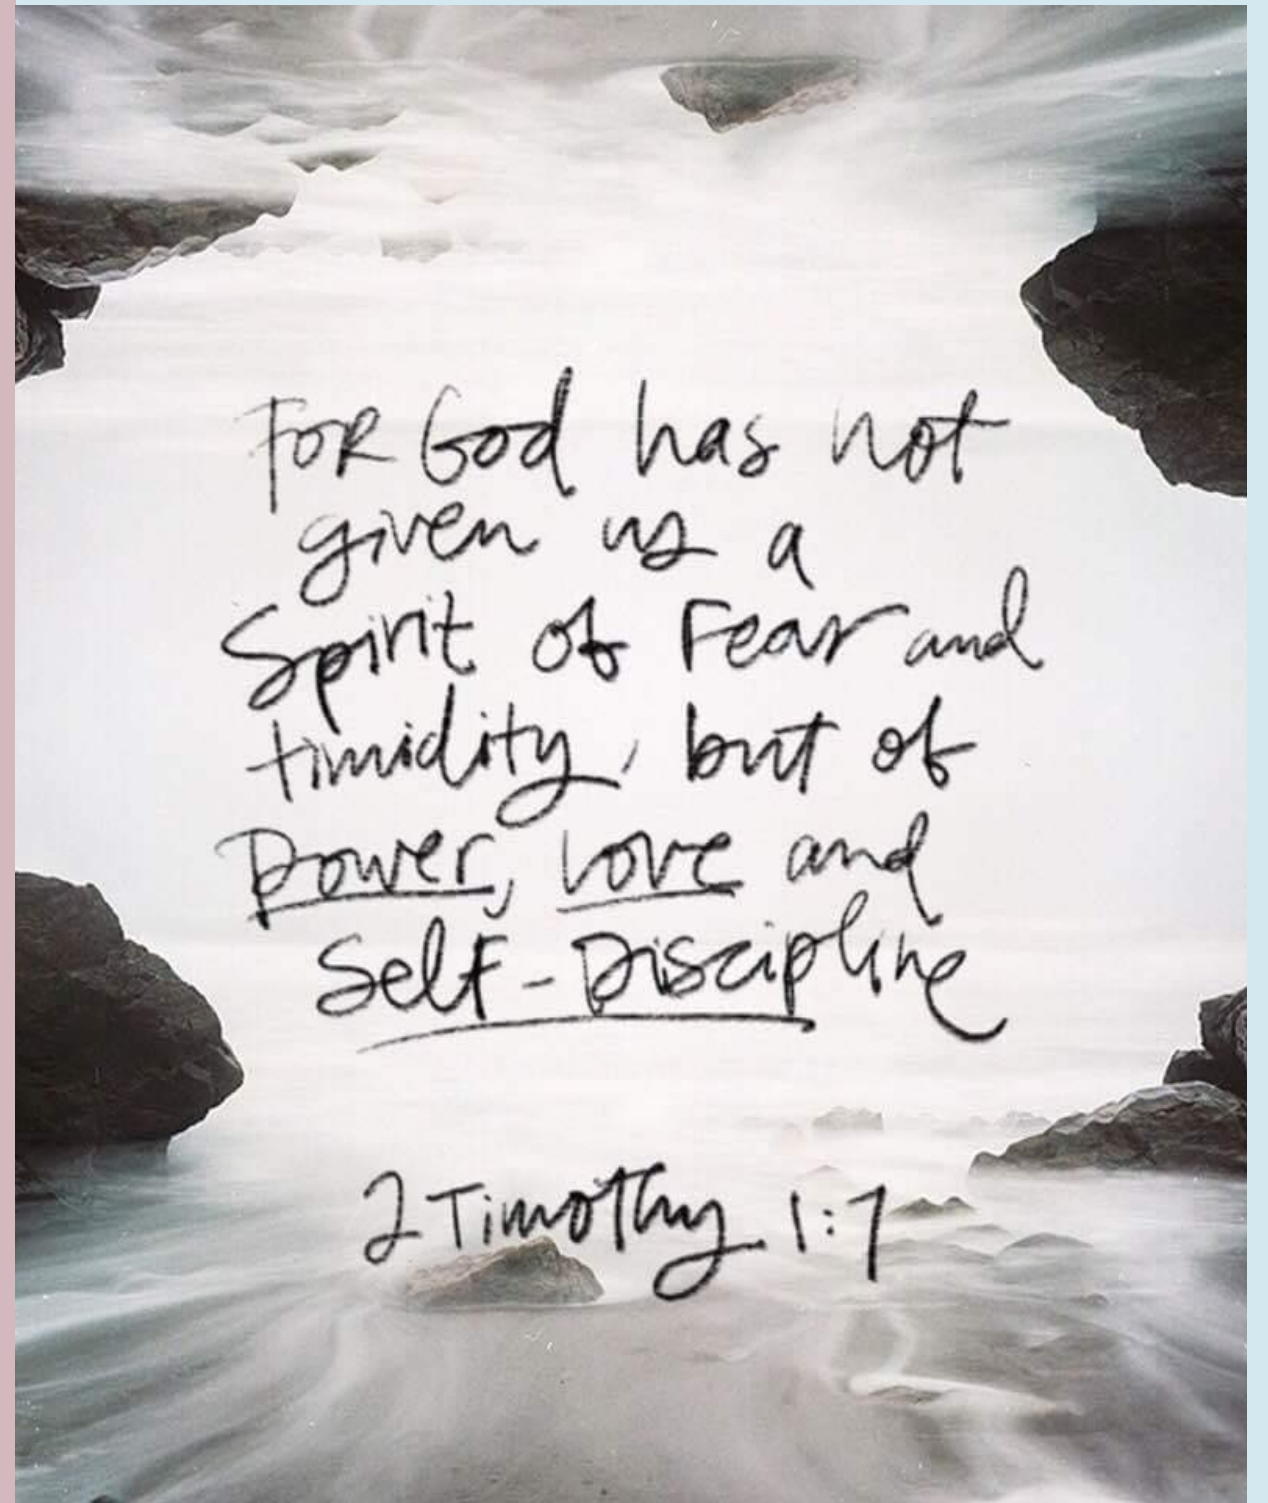 FOR God has not
given us a
Spirit of Fear and
timidity, but of
Power, Love and
Self-Discipline
2 Timothy 1:7